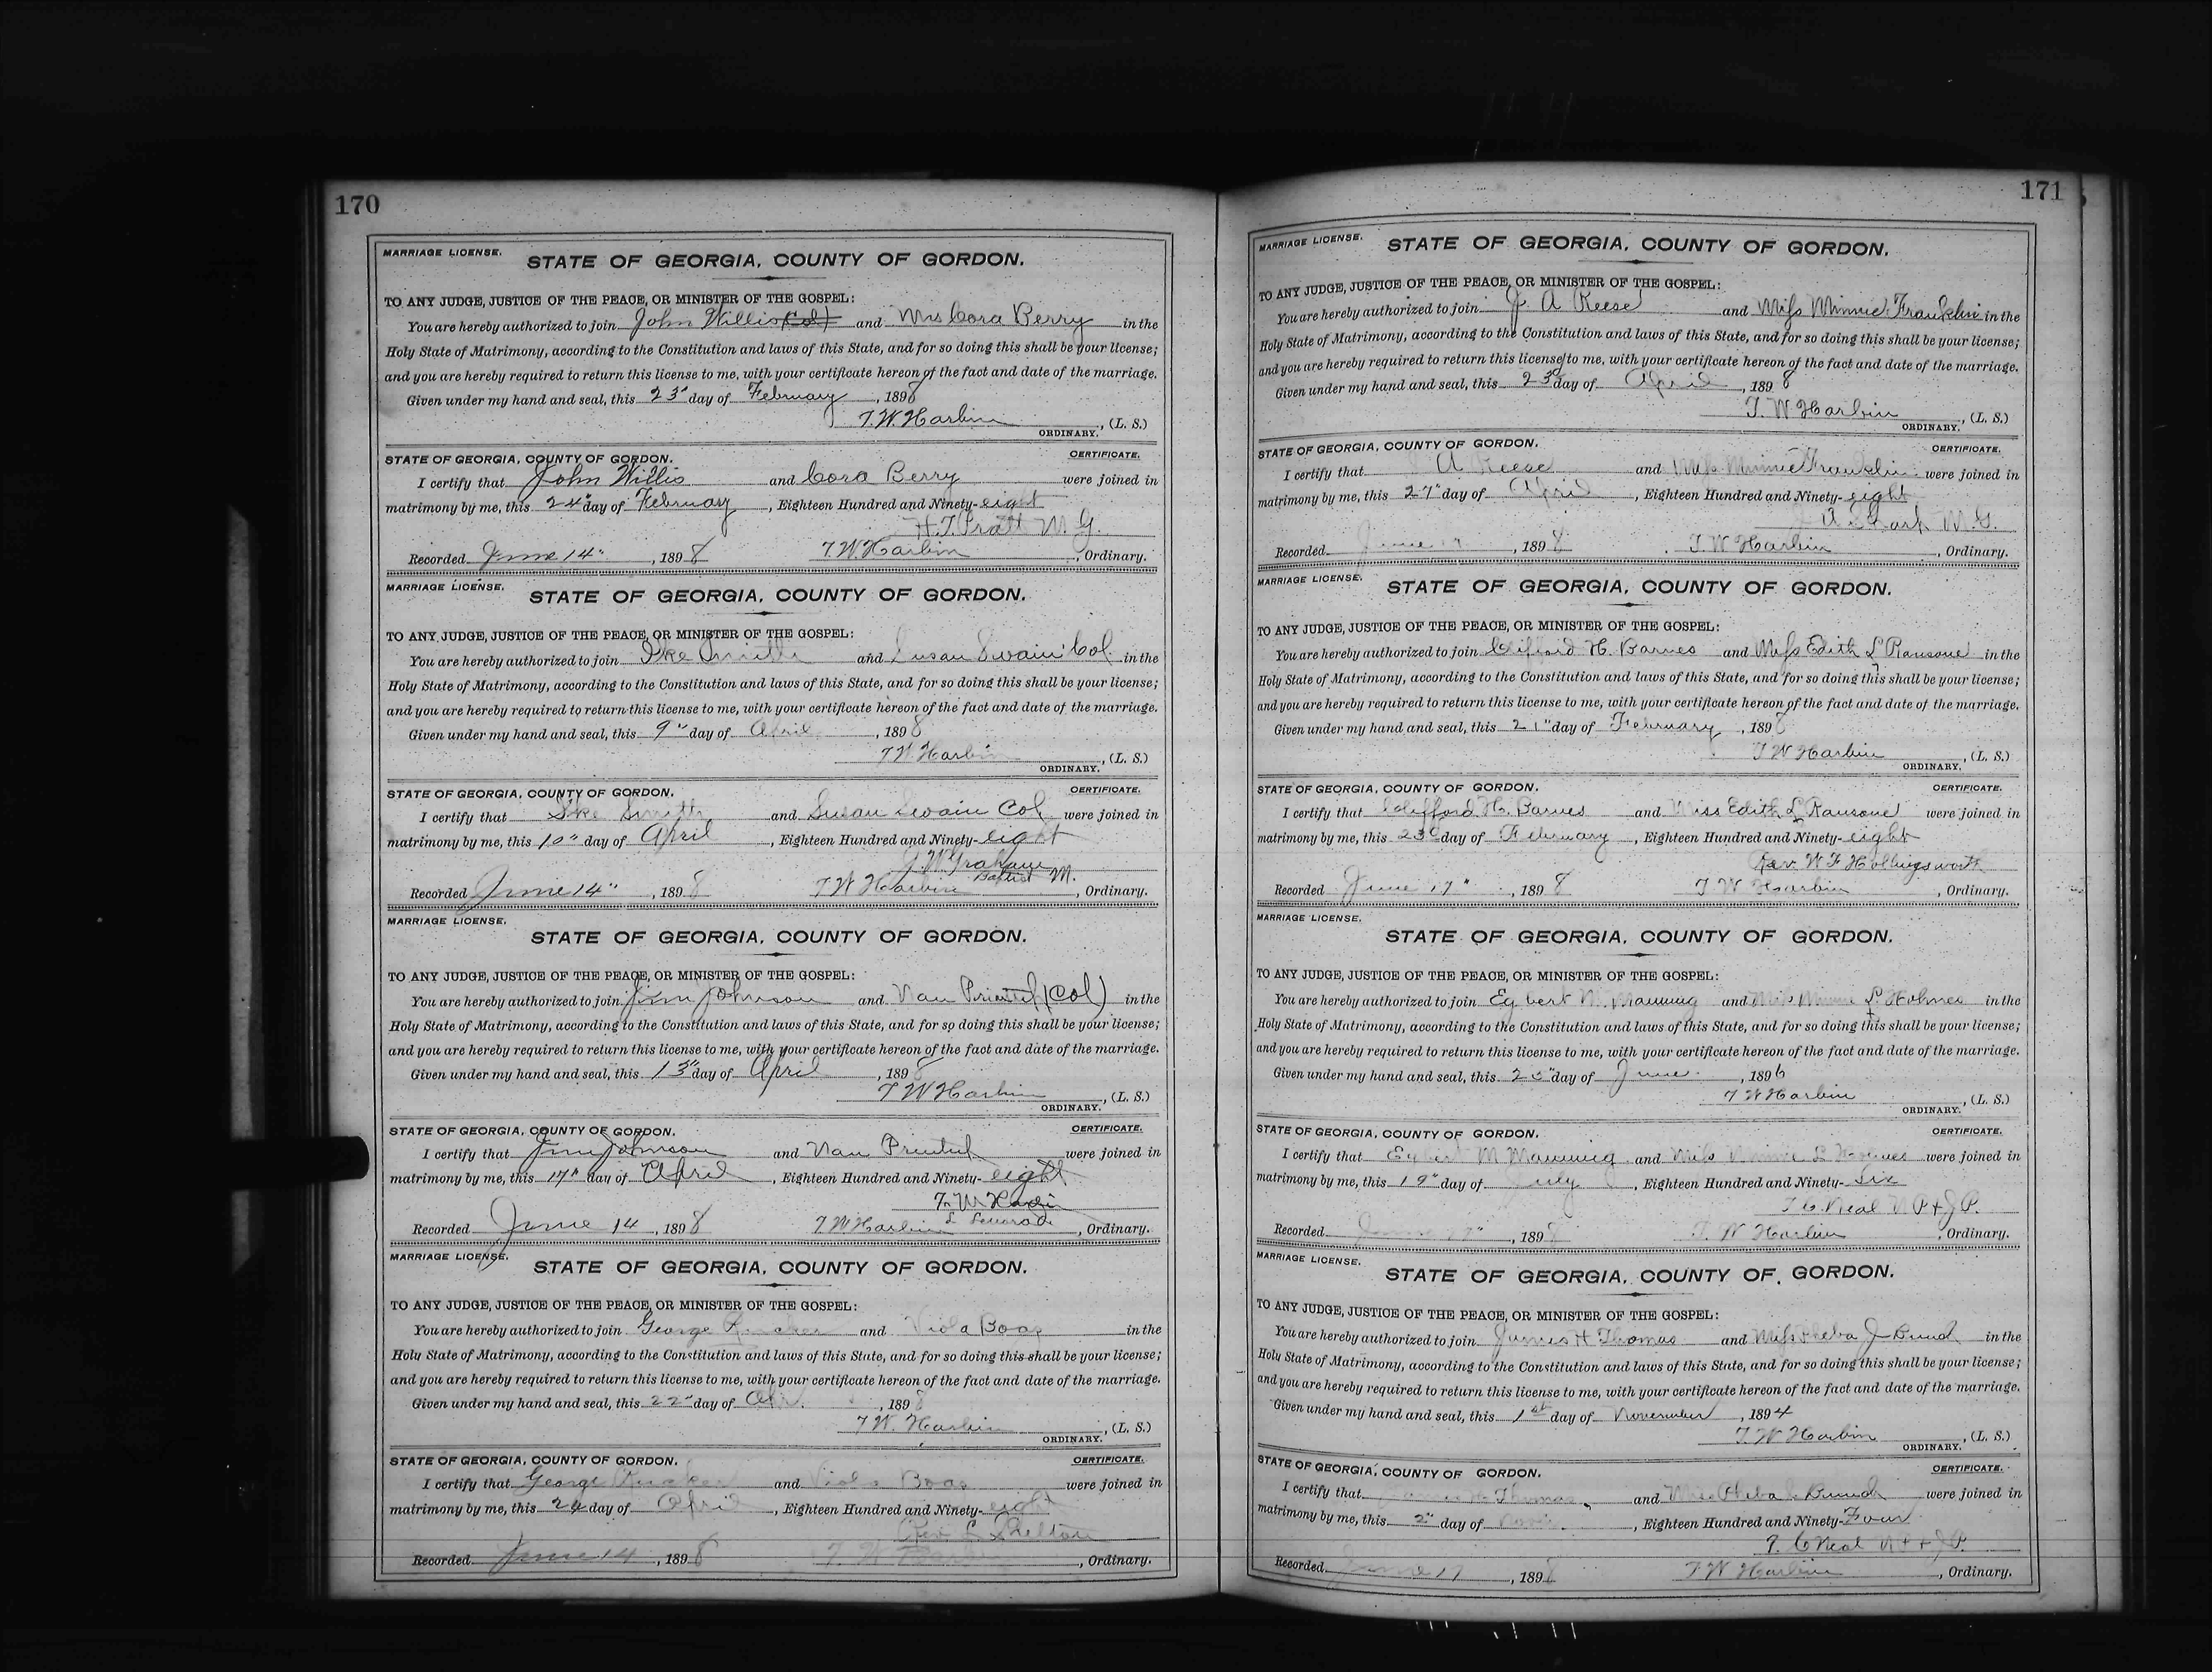 170
MARRIAGE LICENSE.
STATE OF GEORGIA, COUNTY OF GORDON.
TO ANY JUDGE, JUSTICE OF THE PEACE, OR MINISTER OF THE GOSPEL:
You are hereby authorized to join John Willis (Col) and Mrs Cora Berry in the
Holy State of Matrimony, according to the Constitution and laws of this State, and for so doing this shall be your license;
and you are hereby required to return this license to me, with your certificate hereon of the fact and date of the marriage.
Given under my hand and seal, this 23" day of February, 1898
T. W. Harbin, (L. S.)
ORDINARY.
STATE OF GEORGIA, COUNTY OF GORDON. CERTIFICATE.
I certify that John Willis and Cora Berry were joined in
matrimony by me, this 24" day of February, Eighteen Hundred and Ninety-eight
H. T. Pratt M. G.
Recorded June 14", 1898 T. W. Harbin, Ordinary.
MARRIAGE LICENSE.
STATE OF GEORGIA, COUNTY OF GORDON.
TO ANY JUDGE, JUSTICE OF THE PEACE, OR MINISTER OF THE GOSPEL:
You are hereby authorized to join Ike Smith and Susan Swain Col. in the
Holy State of Matrimony, according to the Constitution and laws of this State, and for so doing this shall be your license;
and you are hereby required to return this license to me, with your certificate hereon of the fact and date of the marriage.
Given under my hand and seal, this 9" day of April, 1898
T. W. Harbin, (L. S.)
ORDINARY.
STATE OF GEORGIA, COUNTY OF GORDON. CERTIFICATE.
I certify that Ike Smith and Susan Swain Col were joined in
matrimony by me, this 10" day of April, Eighteen Hundred and Ninety-eight
J. W. Graham
Baptist M.
Recorded June 14", 1898 T W Harbin, Ordinary.
MARRIAGE LICENSE.
STATE OF GEORGIA, COUNTY OF GORDON.
TO ANY JUDGE, JUSTICE OF THE PEACE, OR MINISTER OF THE GOSPEL:
You are hereby authorized to join Jim Johnson and Nan (Col) in the
Holy State of Matrimony, according to the Constitution and laws of this State, and for so doing this shall be your license;
and you are hereby required to return this license to me, with your certificate hereon of the fact and date of the marriage.
Given under my hand and seal, this 13" day of April, 1898
T W Harbin, (L. S.)
ORDINARY.
STATE OF GEORGIA, COUNTY OF GORDON. CERTIFICATE.
I certify that Jim Johnson and Nan were joined in
matrimony by me, this 17" day of April, Eighteen Hundred and Ninety-eight
Recorded June 14, 1898 T. W. Harbin, Ordinary.
MARRIAGE LICENSE.
STATE OF GEORGIA, COUNTY OF GORDON.
TO ANY JUDGE, JUSTICE OF THE PEACE, OR MINISTER OF THE GOSPEL:
You are hereby authorized to join George Rucker and Viola Boaz in the
Holy State of Matrimony, according to the Constitution and laws of this State, and for so doing this shall be your license;
and you are hereby required to return this license to me, with your certificate hereon of the fact and date of the marriage.
Given under my hand and seal, this 22" day of Apr., 1898
T. W. Harbin, (L. S.)
ORDINARY.
STATE OF GEORGIA, COUNTY OF GORDON. CERTIFICATE.
I certify that George Rucker and Viola Boaz were joined in
matrimony by me, this 24 day of April, Eighteen Hundred and Ninety-eight
Rev. L. Shelton
Recorded June 14, 1898 T. W. Harbin, Ordinary.
171
MARRIAGE LICENSE.
STATE OF GEORGIA, COUNTY OF GORDON.
TO ANY JUDGE, JUSTICE OF THE PEACE, OR MINISTER OF THE GOSPEL:
You are hereby authorized to join J. A Reese and Miss Minnie Franklin in the
Holy State of Matrimony, according to the Constitution and laws of this State, and for so doing this shall be your license;
and you are hereby required to return this license to me, with your certificate hereon of the fact and date of the marriage.
Given under my hand and seal, this 23" day of April, 1898
T. W Harbin, (L. S.)
ORDINARY.
STATE OF GEORGIA, COUNTY OF GORDON. CERTIFICATE.
I certify that A Reese and Miss Minnie Franklin were joined in
matrimony by me, this 27" day of April, Eighteen Hundred and Ninety-eight
A Sharp M. G.
Recorded June 17, 1898 T. W Harbin, Ordinary.
MARRIAGE LICENSE.
STATE OF GEORGIA, COUNTY OF GORDON.
TO ANY JUDGE, JUSTICE OF THE PEACE, OR MINISTER OF THE GOSPEL:
You are hereby authorized to join Clifford H. Barnes and Miss Edith L Ransone in the
Holy State of Matrimony, according to the Constitution and laws of this State, and for so doing this shall be your license;
and you are hereby required to return this license to me, with your certificate hereon of the fact and date of the marriage.
Given under my hand and seal, this 21" day of February, 1898
T W Harbin, (L. S.)
ORDINARY.
STATE OF GEORGIA, COUNTY OF GORDON. CERTIFICATE.
I certify that Clifford H. Barnes and Miss Edith L Ransone were joined in
matrimony by me, this 23d day of February, Eighteen Hundred and Ninety-eight
Rev. W F Hollingsworth
Recorded June 17", 1898 T W Harbin, Ordinary.
MARRIAGE LICENSE.
STATE OF GEORGIA, COUNTY OF GORDON.
TO ANY JUDGE, JUSTICE OF THE PEACE, OR MINISTER OF THE GOSPEL:
You are hereby authorized to join Egbert M. Manning and Miss Minnie L. Holmes in the
Holy State of Matrimony, according to the Constitution and laws of this State, and for so doing this shall be your license;
and you are hereby required to return this license to me, with your certificate hereon of the fact and date of the marriage.
Given under my hand and seal, this 20" day of June, 1896
T W Harbin, (L. S.)
ORDINARY.
STATE OF GEORGIA, COUNTY OF GORDON. CERTIFICATE.
I certify that Egbert M Manning and Miss Minnie L Holmes were joined in
matrimony by me, this 19" day of July, Eighteen Hundred and Ninety-Six
T. C. Neal N P & J P.
Recorded June 17", 1898 T. W Harbin, Ordinary.
MARRIAGE LICENSE.
STATE OF GEORGIA, COUNTY OF GORDON.
TO ANY JUDGE, JUSTICE OF THE PEACE, OR MINISTER OF THE GOSPEL:
You are hereby authorized to join James H Thomas and Miss Pheba J Bunch in the
Holy State of Matrimony, according to the Constitution and laws of this State, and for so doing this shall be your license;
and you are hereby required to return this license to me, with your certificate hereon of the fact and date of the marriage.
Given under my hand and seal, this 1st day of November, 1894
T. W Harbin, (L. S.)
ORDINARY.
STATE OF GEORGIA, COUNTY OF GORDON. CERTIFICATE.
I certify that James H Thomas and Miss Pheba J Bunch were joined in
matrimony by me, this 2" day of Nov., Eighteen Hundred and Ninety-Four
T. C Neal N P & J P.
Recorded June 17, 1898 T. W Harbin, Ordinary.